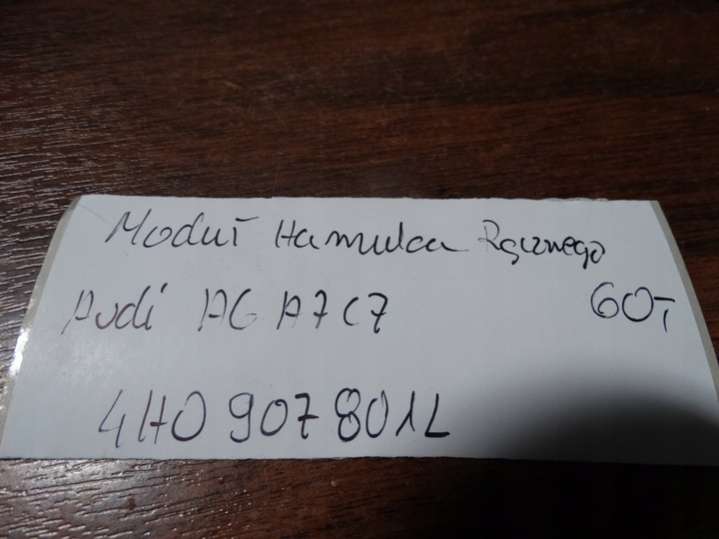 Moduł Hamulca Ręcznego
Audi A6 A7 C7 60,-
4H0 907 801L